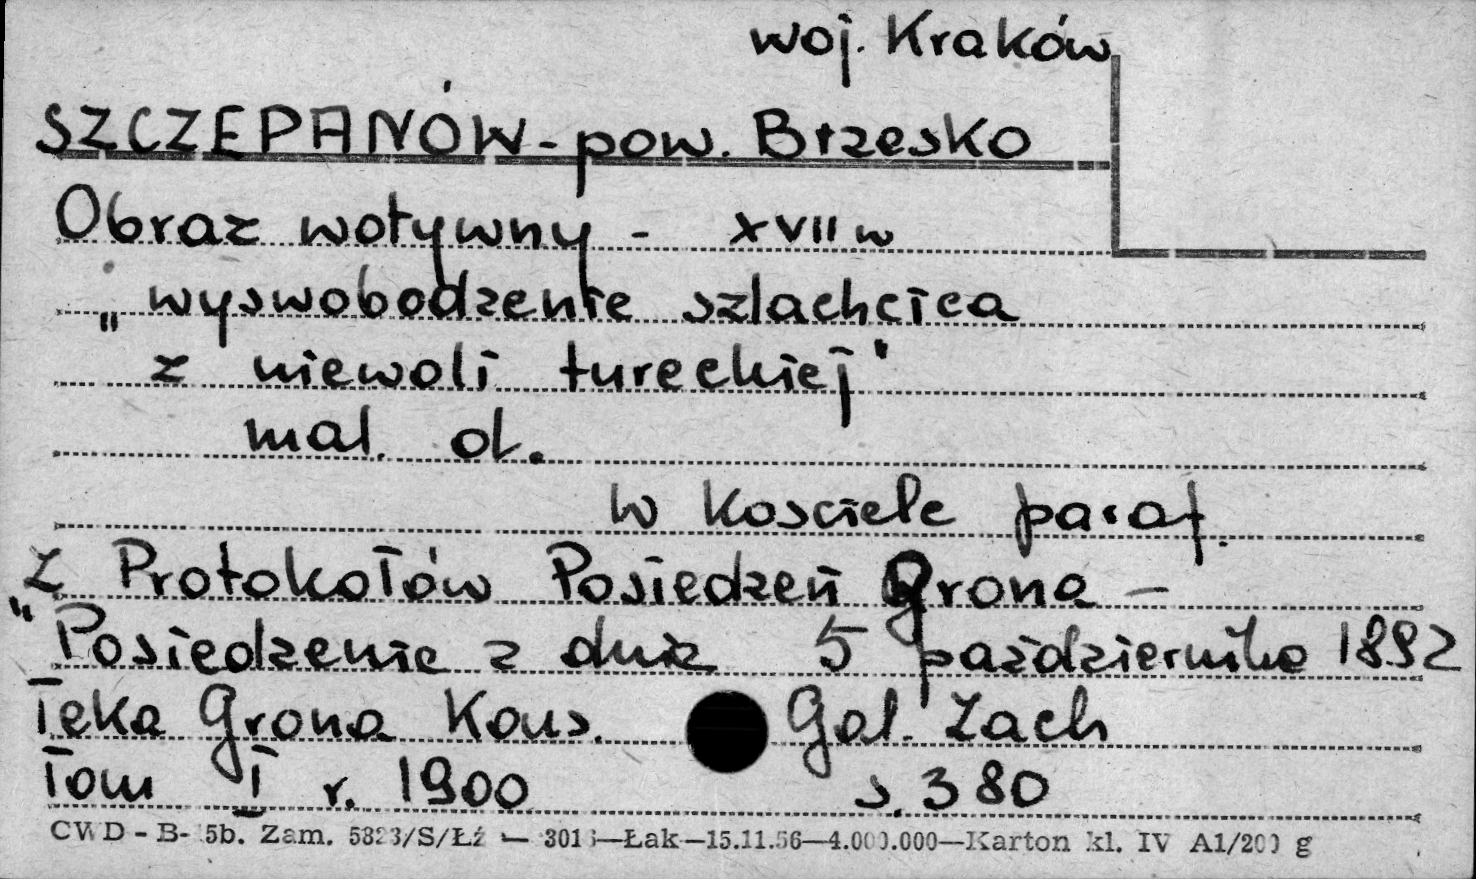 woj. Kraków
SZCZEPANÓW - pow. Brzesko
Obraz wotywny - XVII w
„wyswobodzenie szlachcica
z niewoli tureckiej"
mal. ol.
w kosciele paraf.
Z Protokołów Posiedzeń Grona -
"Posiedzenie z dnia 5 października 1892
Teka Grona Kons. Gal. Zach
Tom I r. 1900 s. 380
CWD - B- 5b. Zam. 5823/S/Łź — 3013—Łak—15.11.56—4.000.000—Karton kl. IV A1/200 g